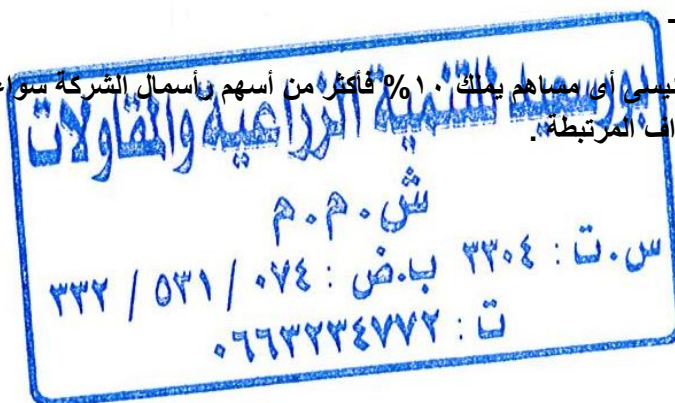 يسى أى مساهم يملك ١٠% فأكثر من أسهم رأسمال الشركة سواء
اف المرتبطة .
بورسعيد للتنمية الزراعية والمقاولات
ش . م . م
س . ت : ٣٣٠٤ ب.ض : ٠٧٤ / ٥٣١ / ٣٣٢
ت : ٠٦٦٣٢٣٤٧٧٢